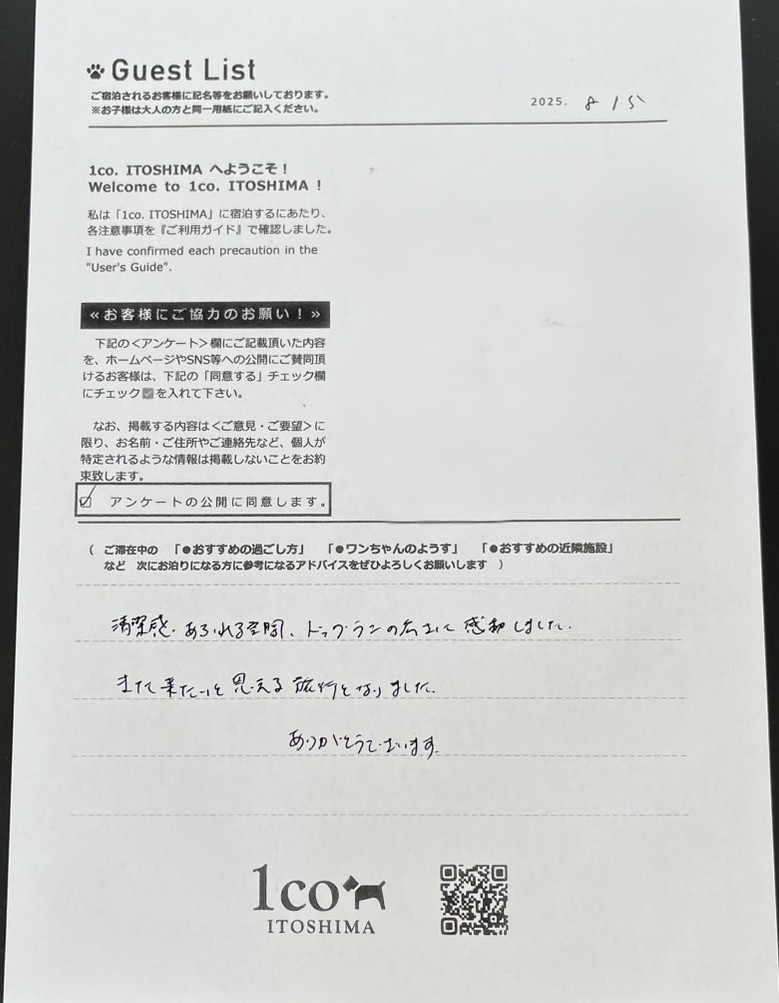 Guest List
ご宿泊されるお客様に記名等をお願いしております。
※お子様は大人の方と同一用紙にご記入ください。
2025. 8 / 5
1co. ITOSHIMA へようこそ！
Welcome to 1co. ITOSHIMA !
私は「1co. ITOSHIMA」に宿泊するにあたり、
各注意事項を『ご利用ガイド』で確認しました。
I have confirmed each precaution in the
"User's Guide".
≪お客様にご協力のお願い！≫
下記の＜アンケート＞欄にご記載頂いた内容
を、ホームページやSNS等への公開にご賛同頂
けるお客様は、下記の「同意する」チェック欄
にチェック☑を入れて下さい。
なお、掲載する内容は＜ご意見・ご要望＞に
限り、お名前・ご住所やご連絡先など、個人が
特定されるような情報は掲載しないことをお約
束致します。
☑ アンケートの公開に同意します。
（ ご滞在中の 「●おすすめの過ごし方」 「●ワンちゃんのようす」 「●おすすめの近隣施設」
など 次にお泊りになる方に参考になるアドバイスをぜひよろしくお願いします ）
清潔感あふれる空間、ドッグランの広さに感動しました。
また来たいと思える旅行となりました。
ありがとうございます。
1co
ITOSHIMA